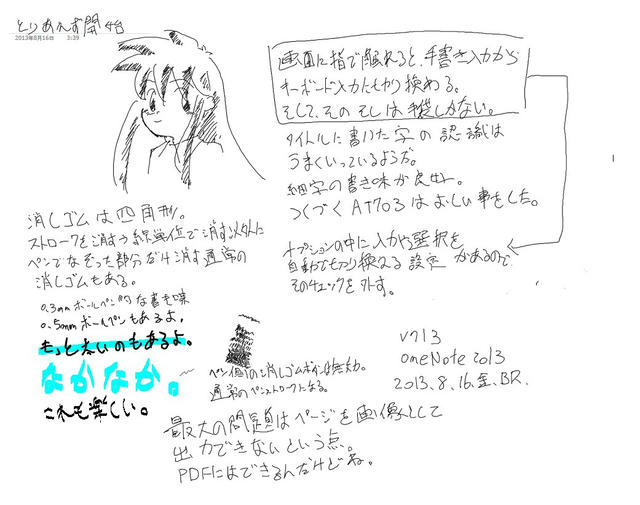 とりあえず開始
2013年8月16日 3:39
画面に指で触れると、手書き入力から
キーボード入力にも切り換わる。
そして、その
しかない。
タイトルに書いた字の認識は
うまくいっているようだ。
細字の書き味が良い。
つくづく AT703 は おしい事をした。
オプションの中に入力や選択を
自動で切り換える 設定 があるので、
そのチェックを外す。
消しゴムは四角形。
ストロークを消す線単位で消す以外に
ペンでなぞった部分だけ消す 通常の
消しゴムもある。
0.3mm ボールペン的な書き味
0.5mm ボールペンもあるよ。
もっと太いのもあるよ。
なかなか。
これも楽しい。
ペン
の消しゴムボタンは無効。
通常のペンストロークになる。
V713
OneNote 2013
2013.8.16.金.BR.
最大の問題はページを画像として
出力できないという点。
PDFにはできるんだけどね。